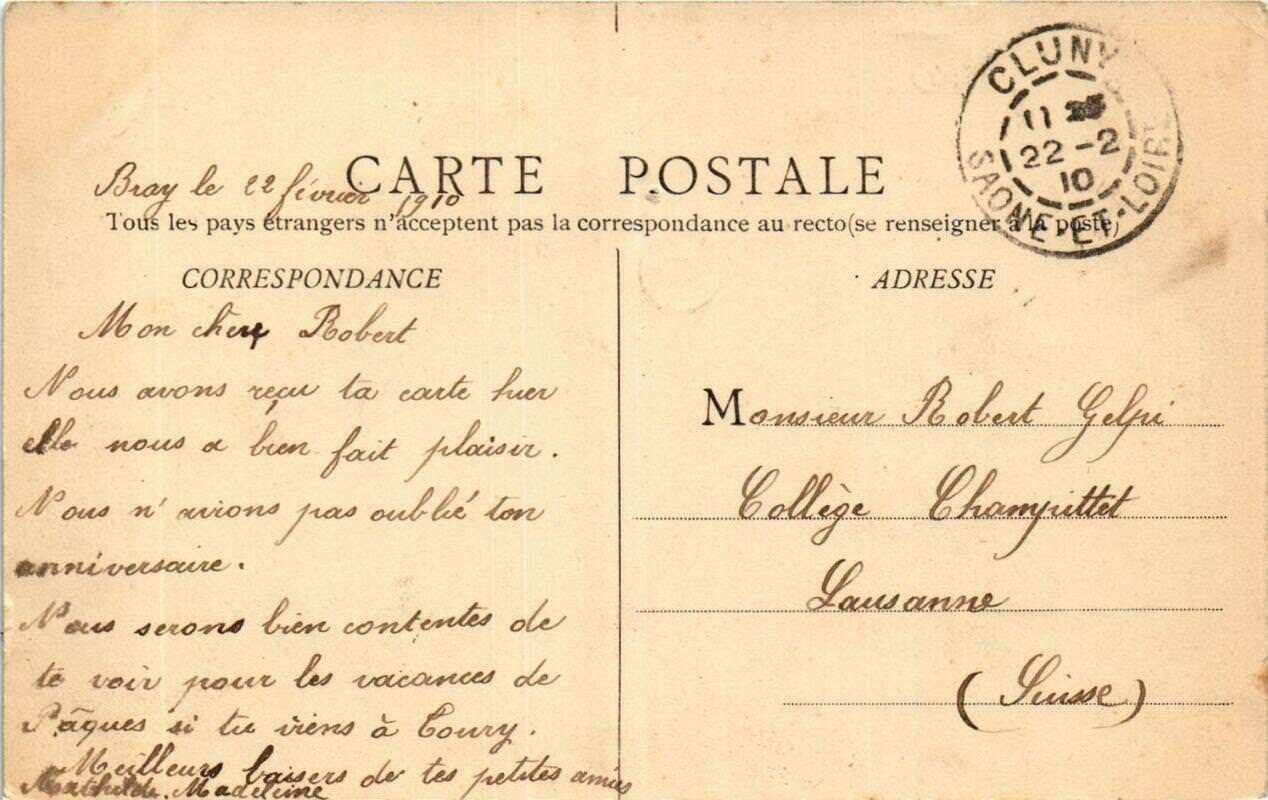 CLUNY
11 25
22 - 2
10
SAONE-ET-LOIRE
CARTE POSTALE
Bray le 22 février 1910
Tous les pays étrangers n'acceptent pas la correspondance au recto (se renseigner à la poste)
CORRESPONDANCE
Mon cher Robert
Nous avons reçu ta carte hier
elle nous a bien fait plaisir.
Nous n'avions pas oublié ton
anniversaire.
Nous serons bien contentes de
te voir pour les vacances de
Pâques si tu viens à Toury.
Meilleurs baisers de tes petites amies
Mathilde. Madeleine
ADRESSE
Monsieur Robert Gelpi
Collège Champittet
Lausanne
(Suisse)